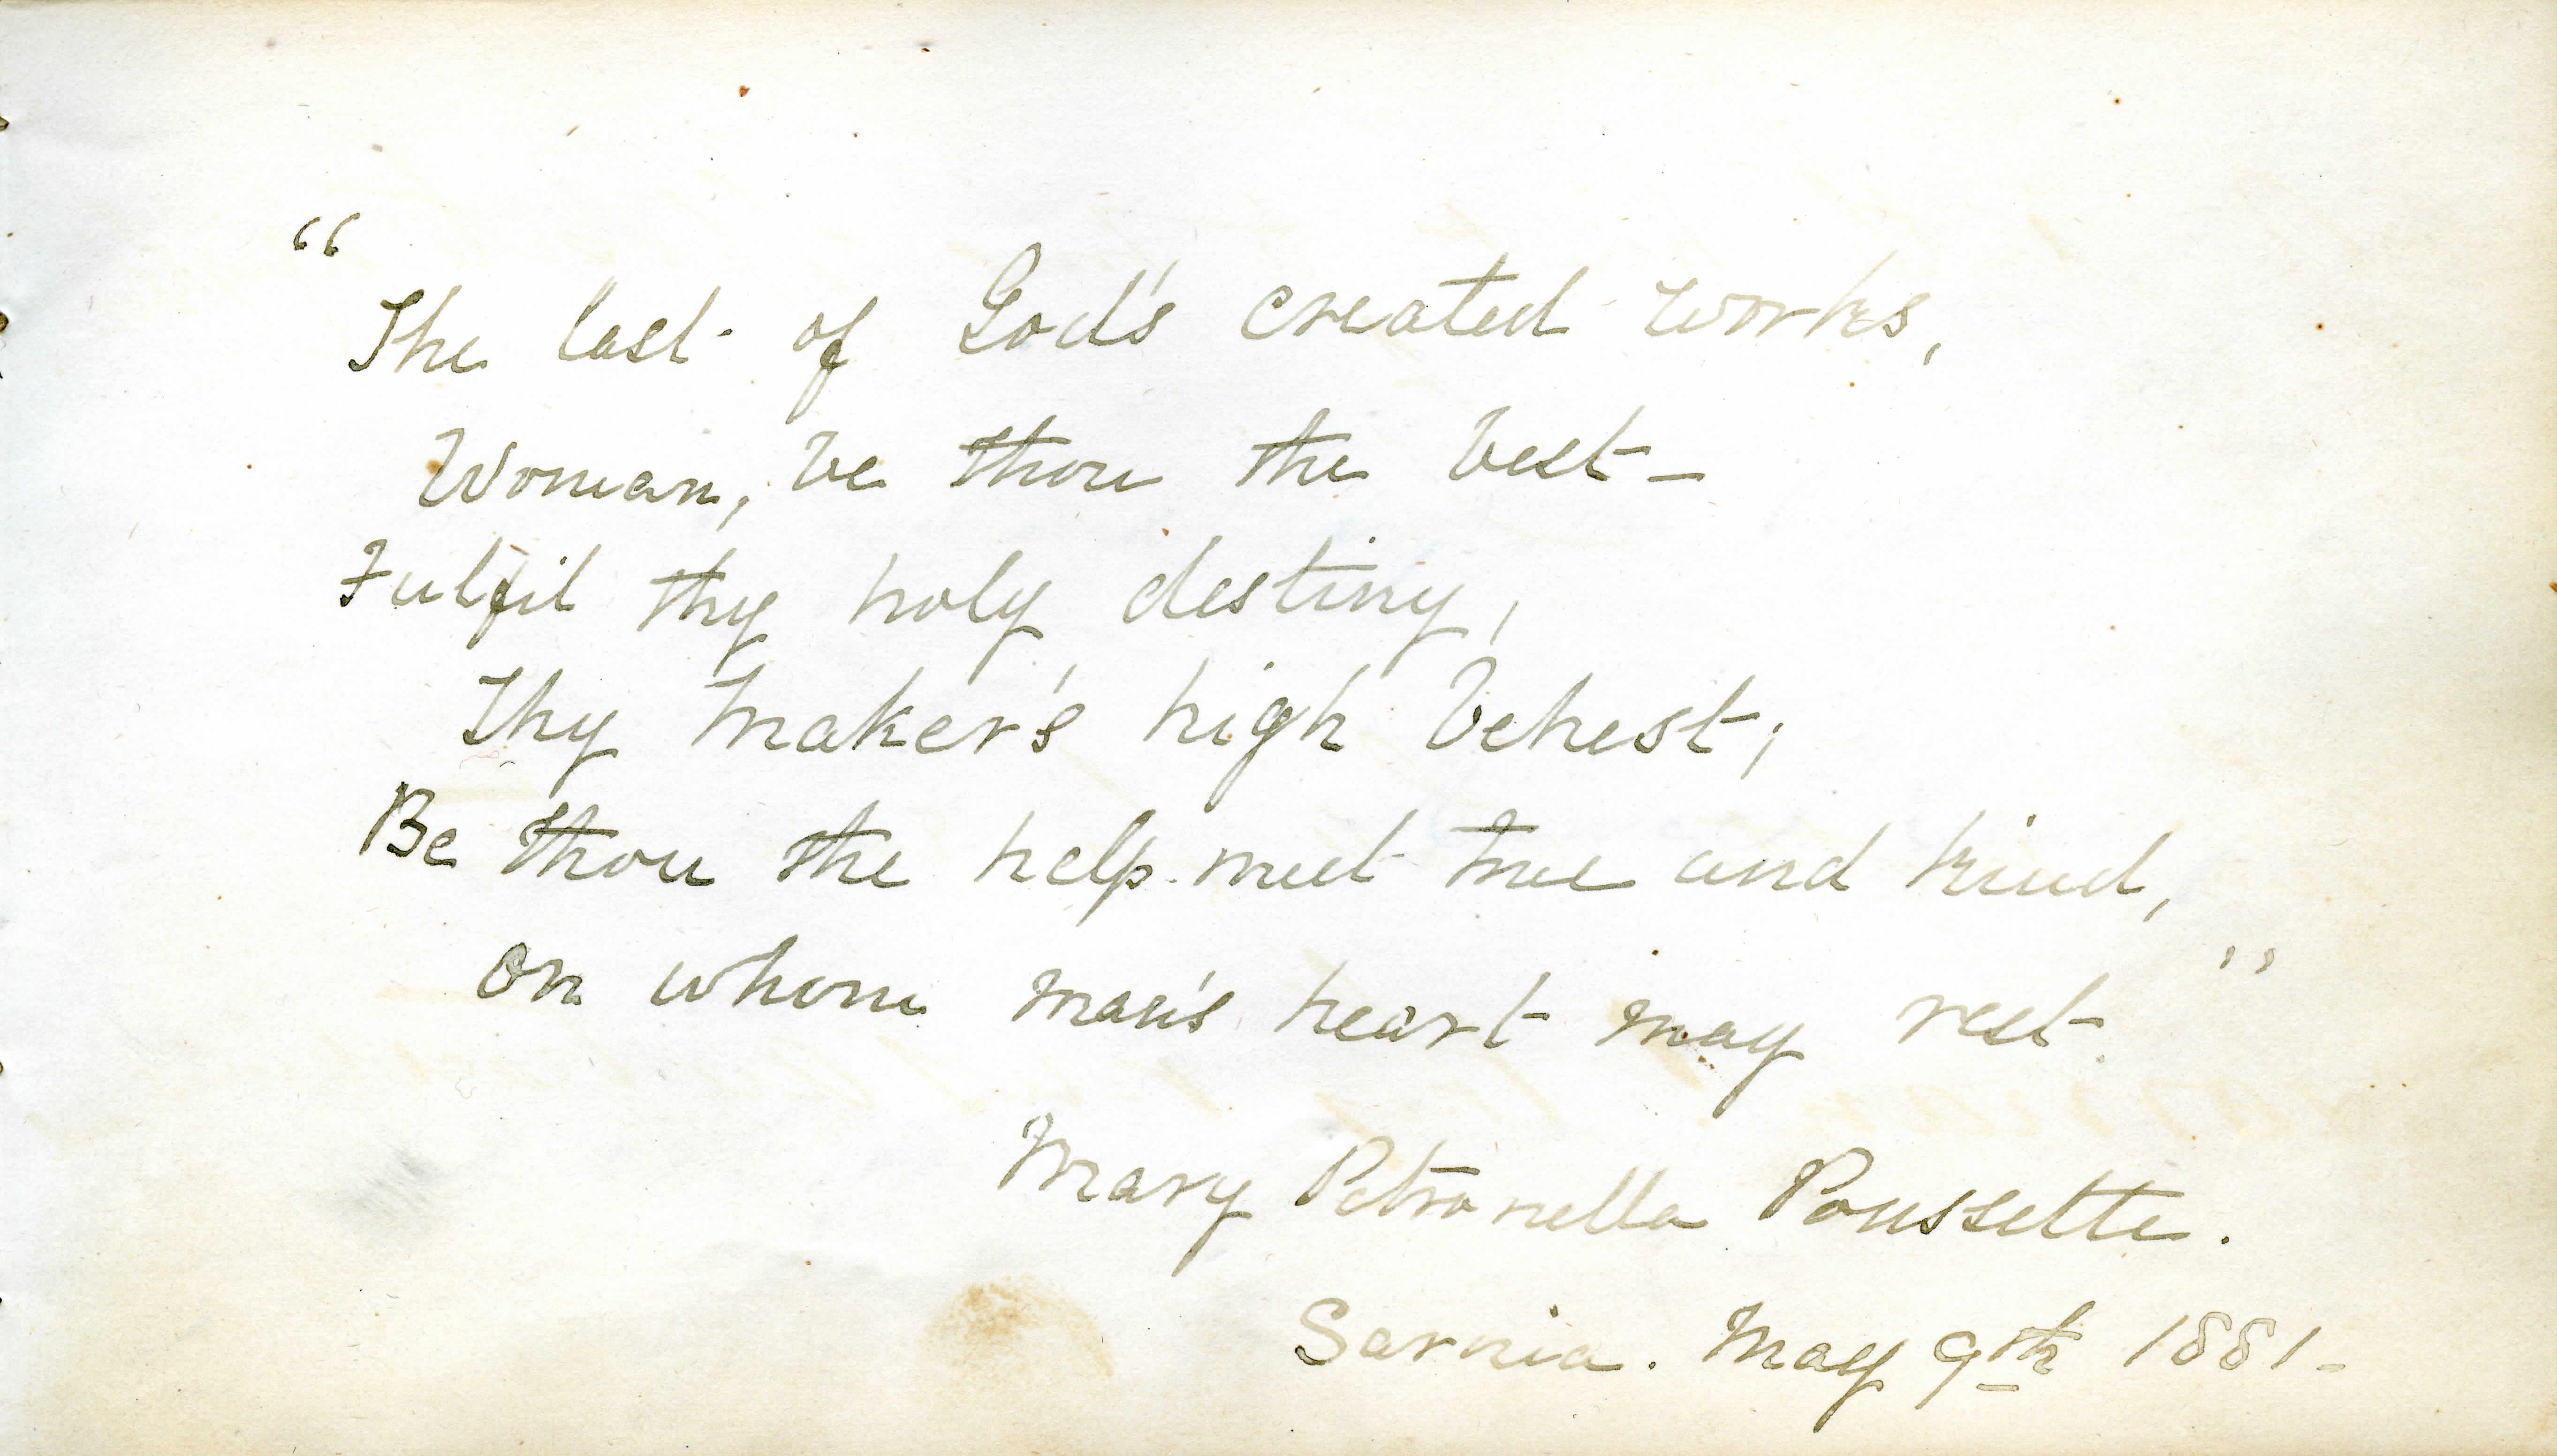 “
The last of God's created works,
Woman, be thou the best –
Fulfil thy holy destiny,
Thy Maker's high behest;
Be thou the help-meet true and kind,
On whom man's heart may rest ”
Mary Petronella Poussette.
Sarnia. May 9th 1881 -